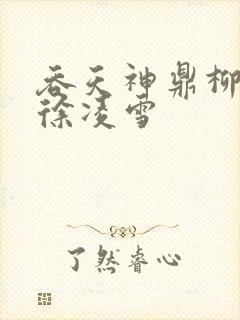 吞天神鼎柳
徐凌雪
了然睿心